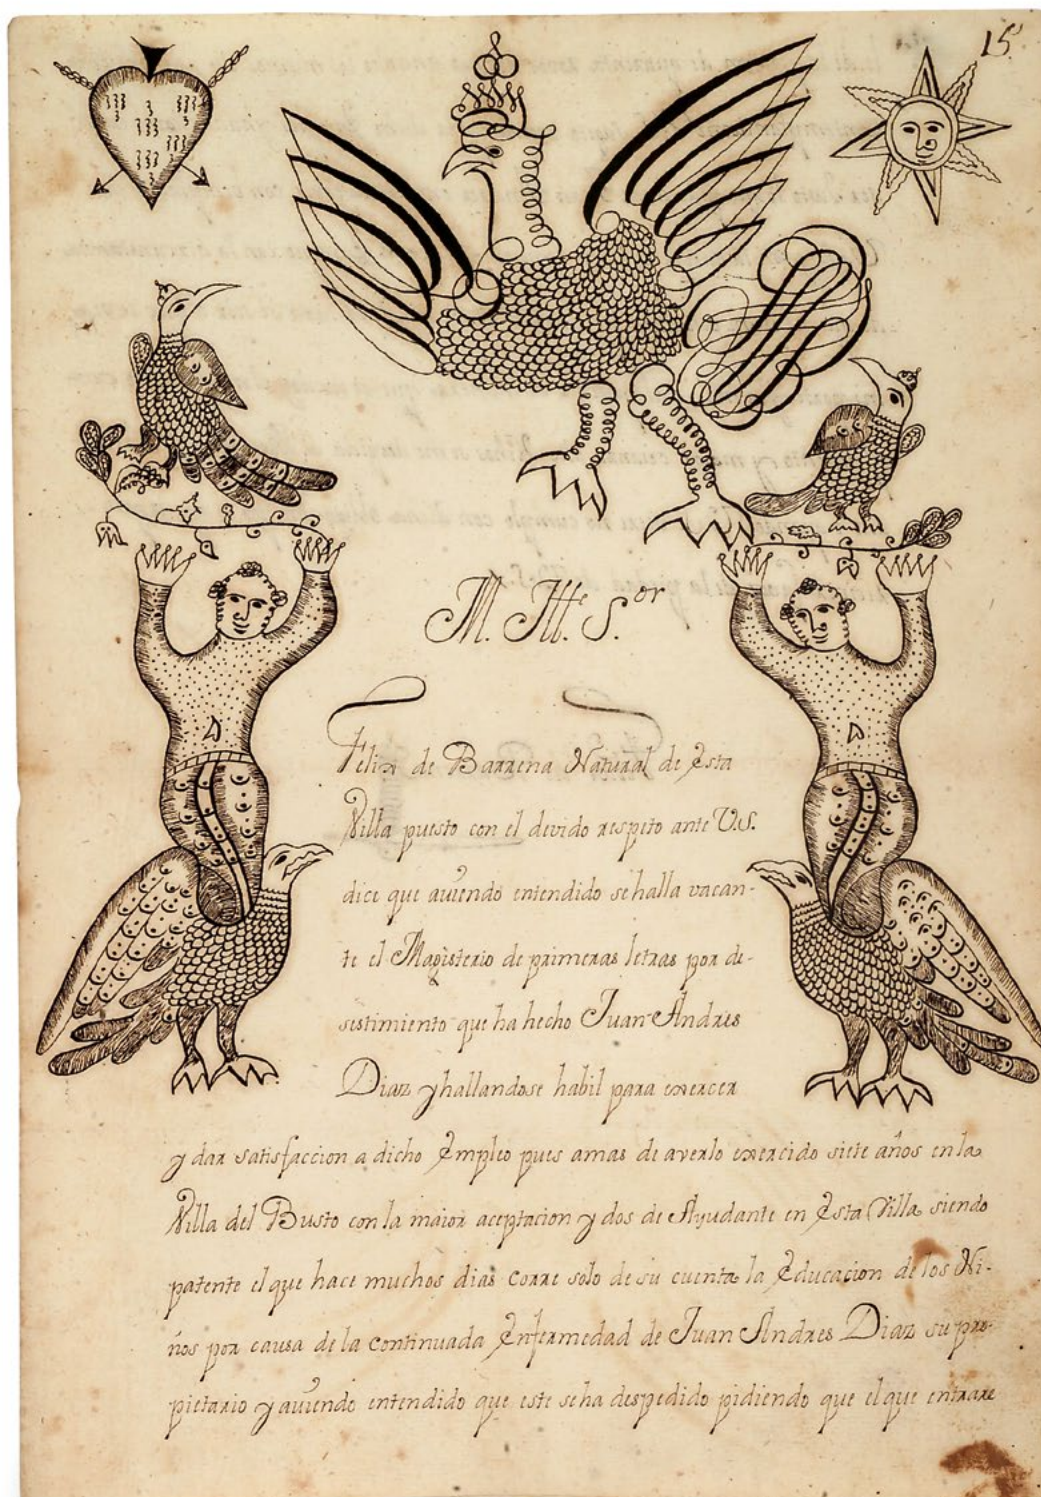 15
M. Itte. S.or
Felix de Barrena Natural de Esta
Villa puesto con el devido respeto ante V.S.
dice que auiendo entendido se halla vacan-
te el Magisterio de primeras letras por de-
sistimiento que ha hecho Juan Andres
Diaz y hallandose habil para exercer
y dar satisfaccion a dicho Empleo pues amas de averlo exercido siete años en la
Villa del Busto con la maior aceptacion y dos de Ayudante en Esta Villa siendo
patente el que hace muchos dias corre solo de su cuenta la Educacion de los Ni-
ños por causa de la continuada Enfermedad de Juan Andres Diaz su pro-
pietario y auiendo entendido que este se ha despedido pidiendo que el que entrare